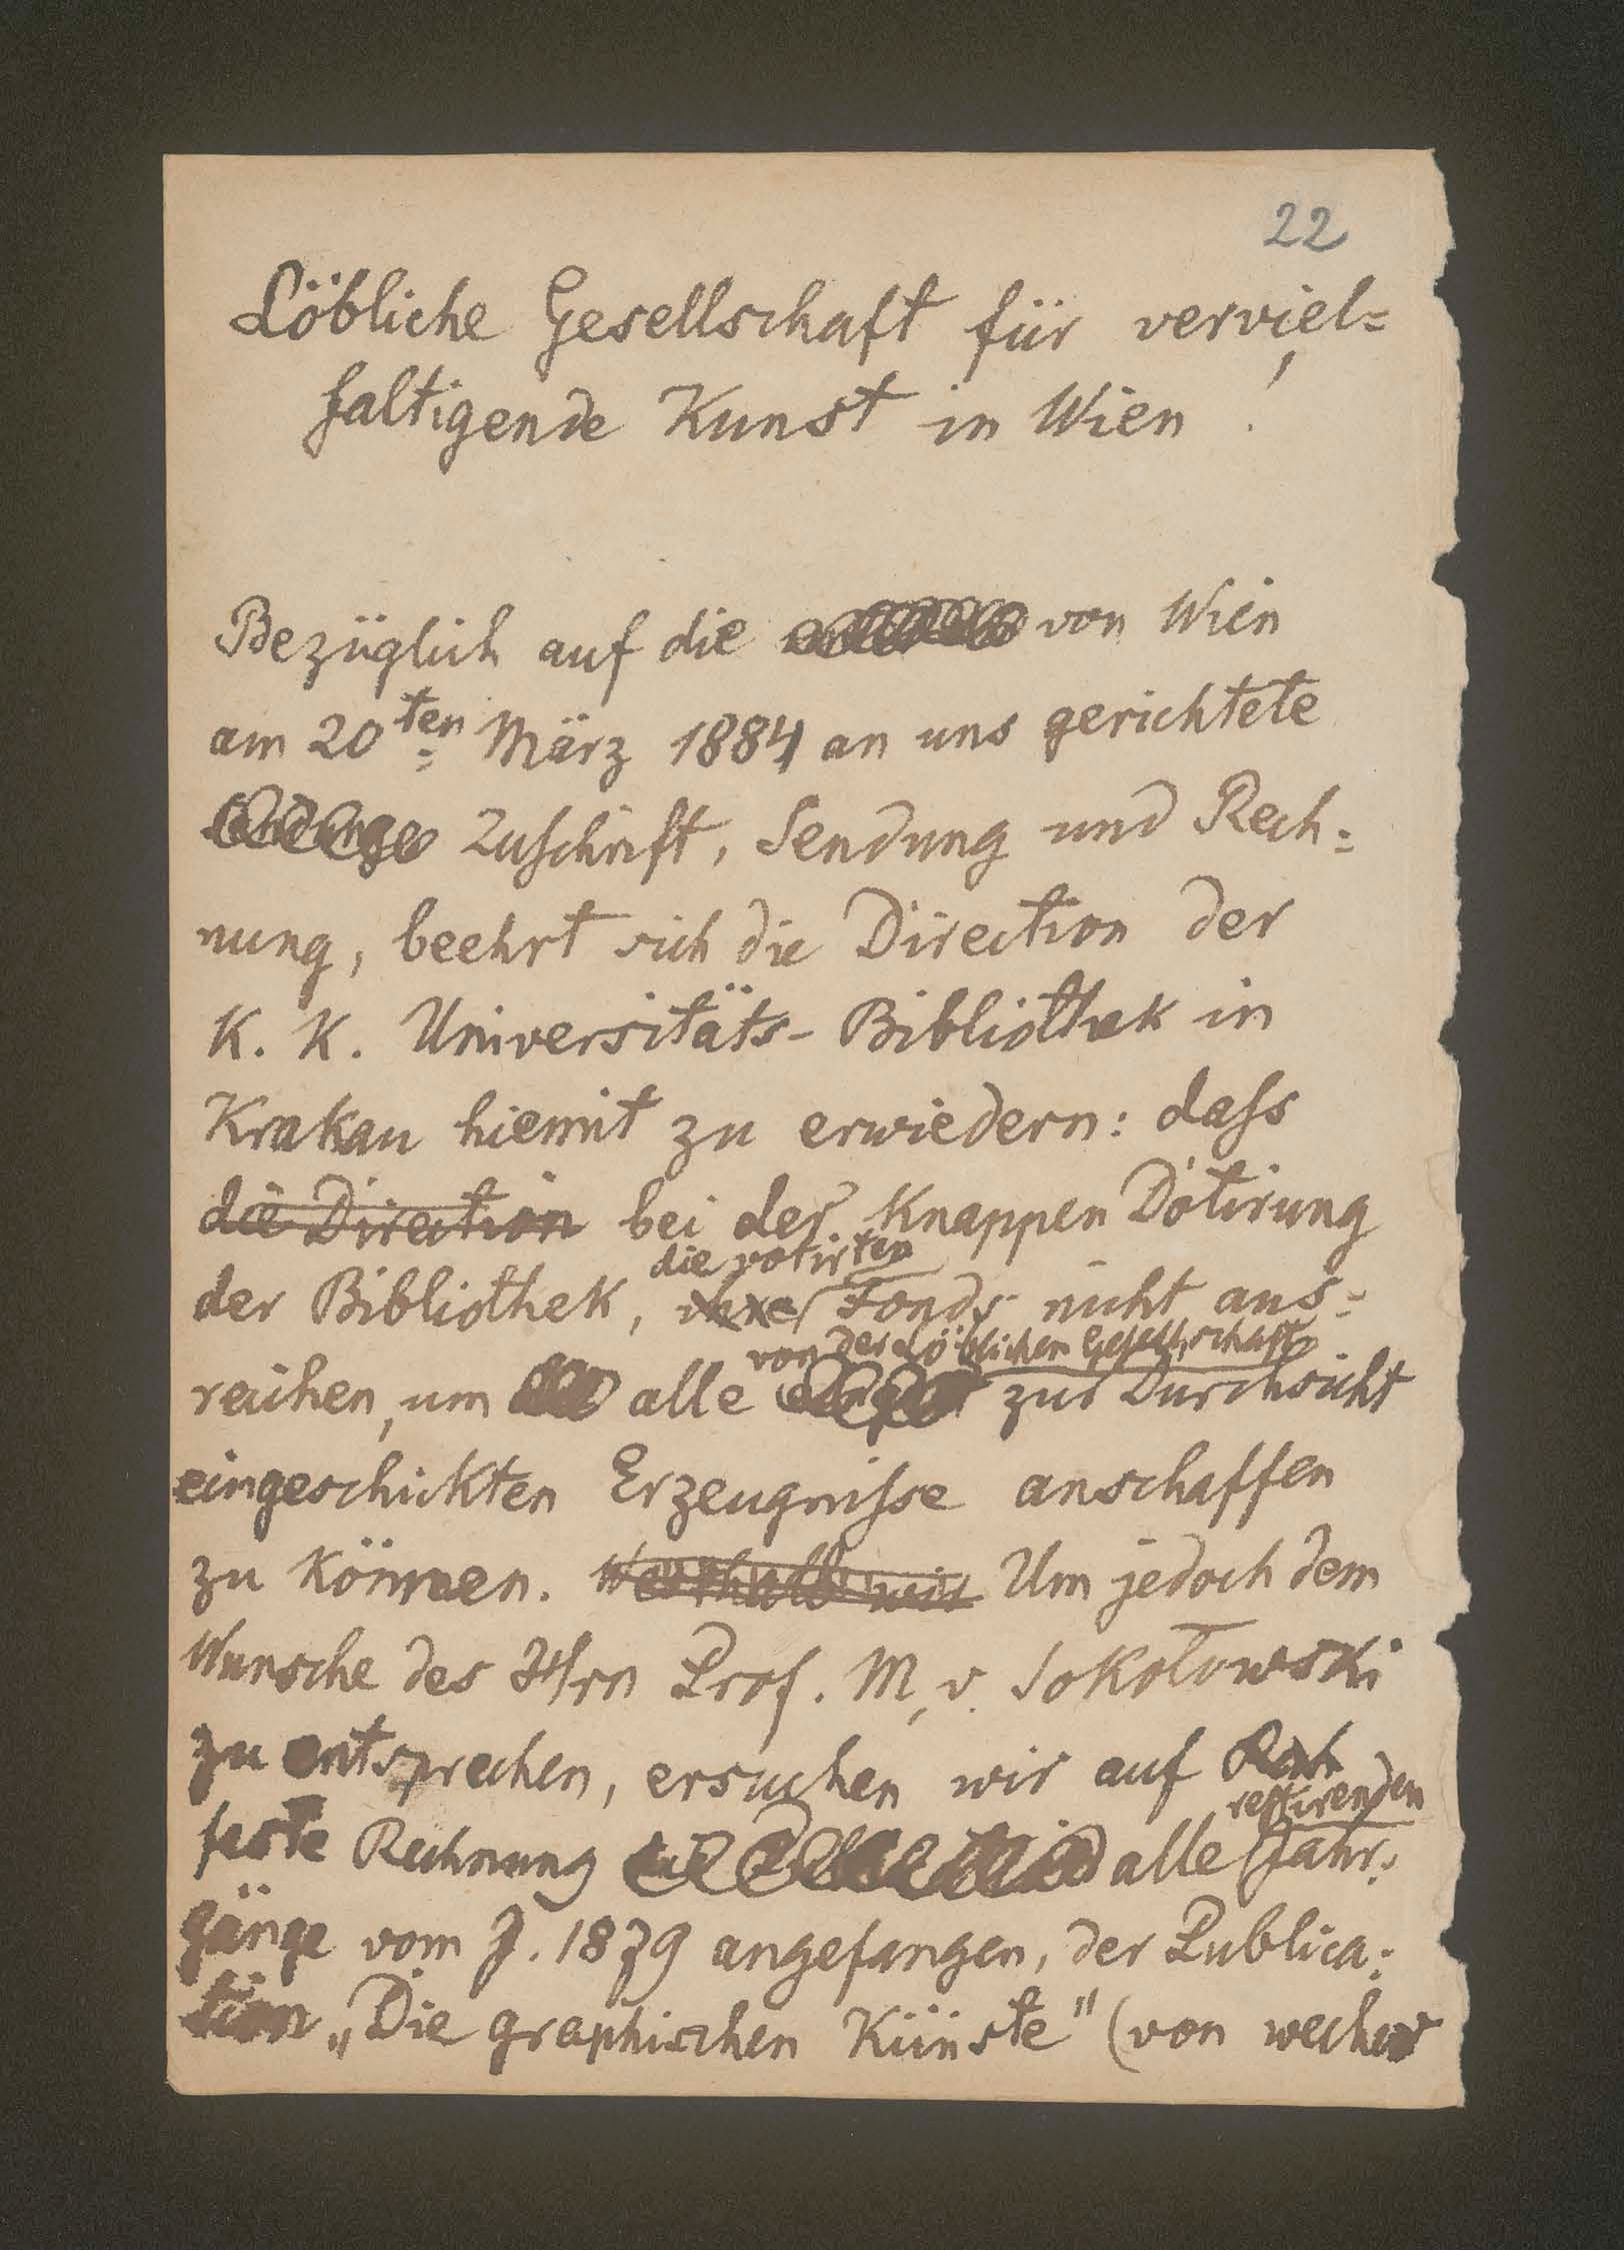 22
Löbliche Gesellschaft für verviel=
faltigende Kunst in Wien !
Bezüglich auf die von Wien
am 20ten März 1884 an uns gerichtete
Zuschrift, Sendung und Rech=
nung, beehrt sich die Direction der
K. K. Universitäts-Bibliothek in
Krakau hiemit zu erwiedern: dass
die Direction bei der Knappen Dotirung
die votirten
der Bibliothek, Fonds nicht aus=
von der Löblichen Gesellschaft
reichen, um alle zur Durchsicht
eingeschickten Erzeugnisse anschaffen
zu können. Um jedoch dem
Wunsche des Hrn Prof. M. v. Sokołowski
zu entsprechen, ersuchen wir auf
restirenden
feste Rechnung alle Jahr=
gänge vom J. 1879 angefangen, der Publica=
tion „Die graphischen Künste" (von wecher